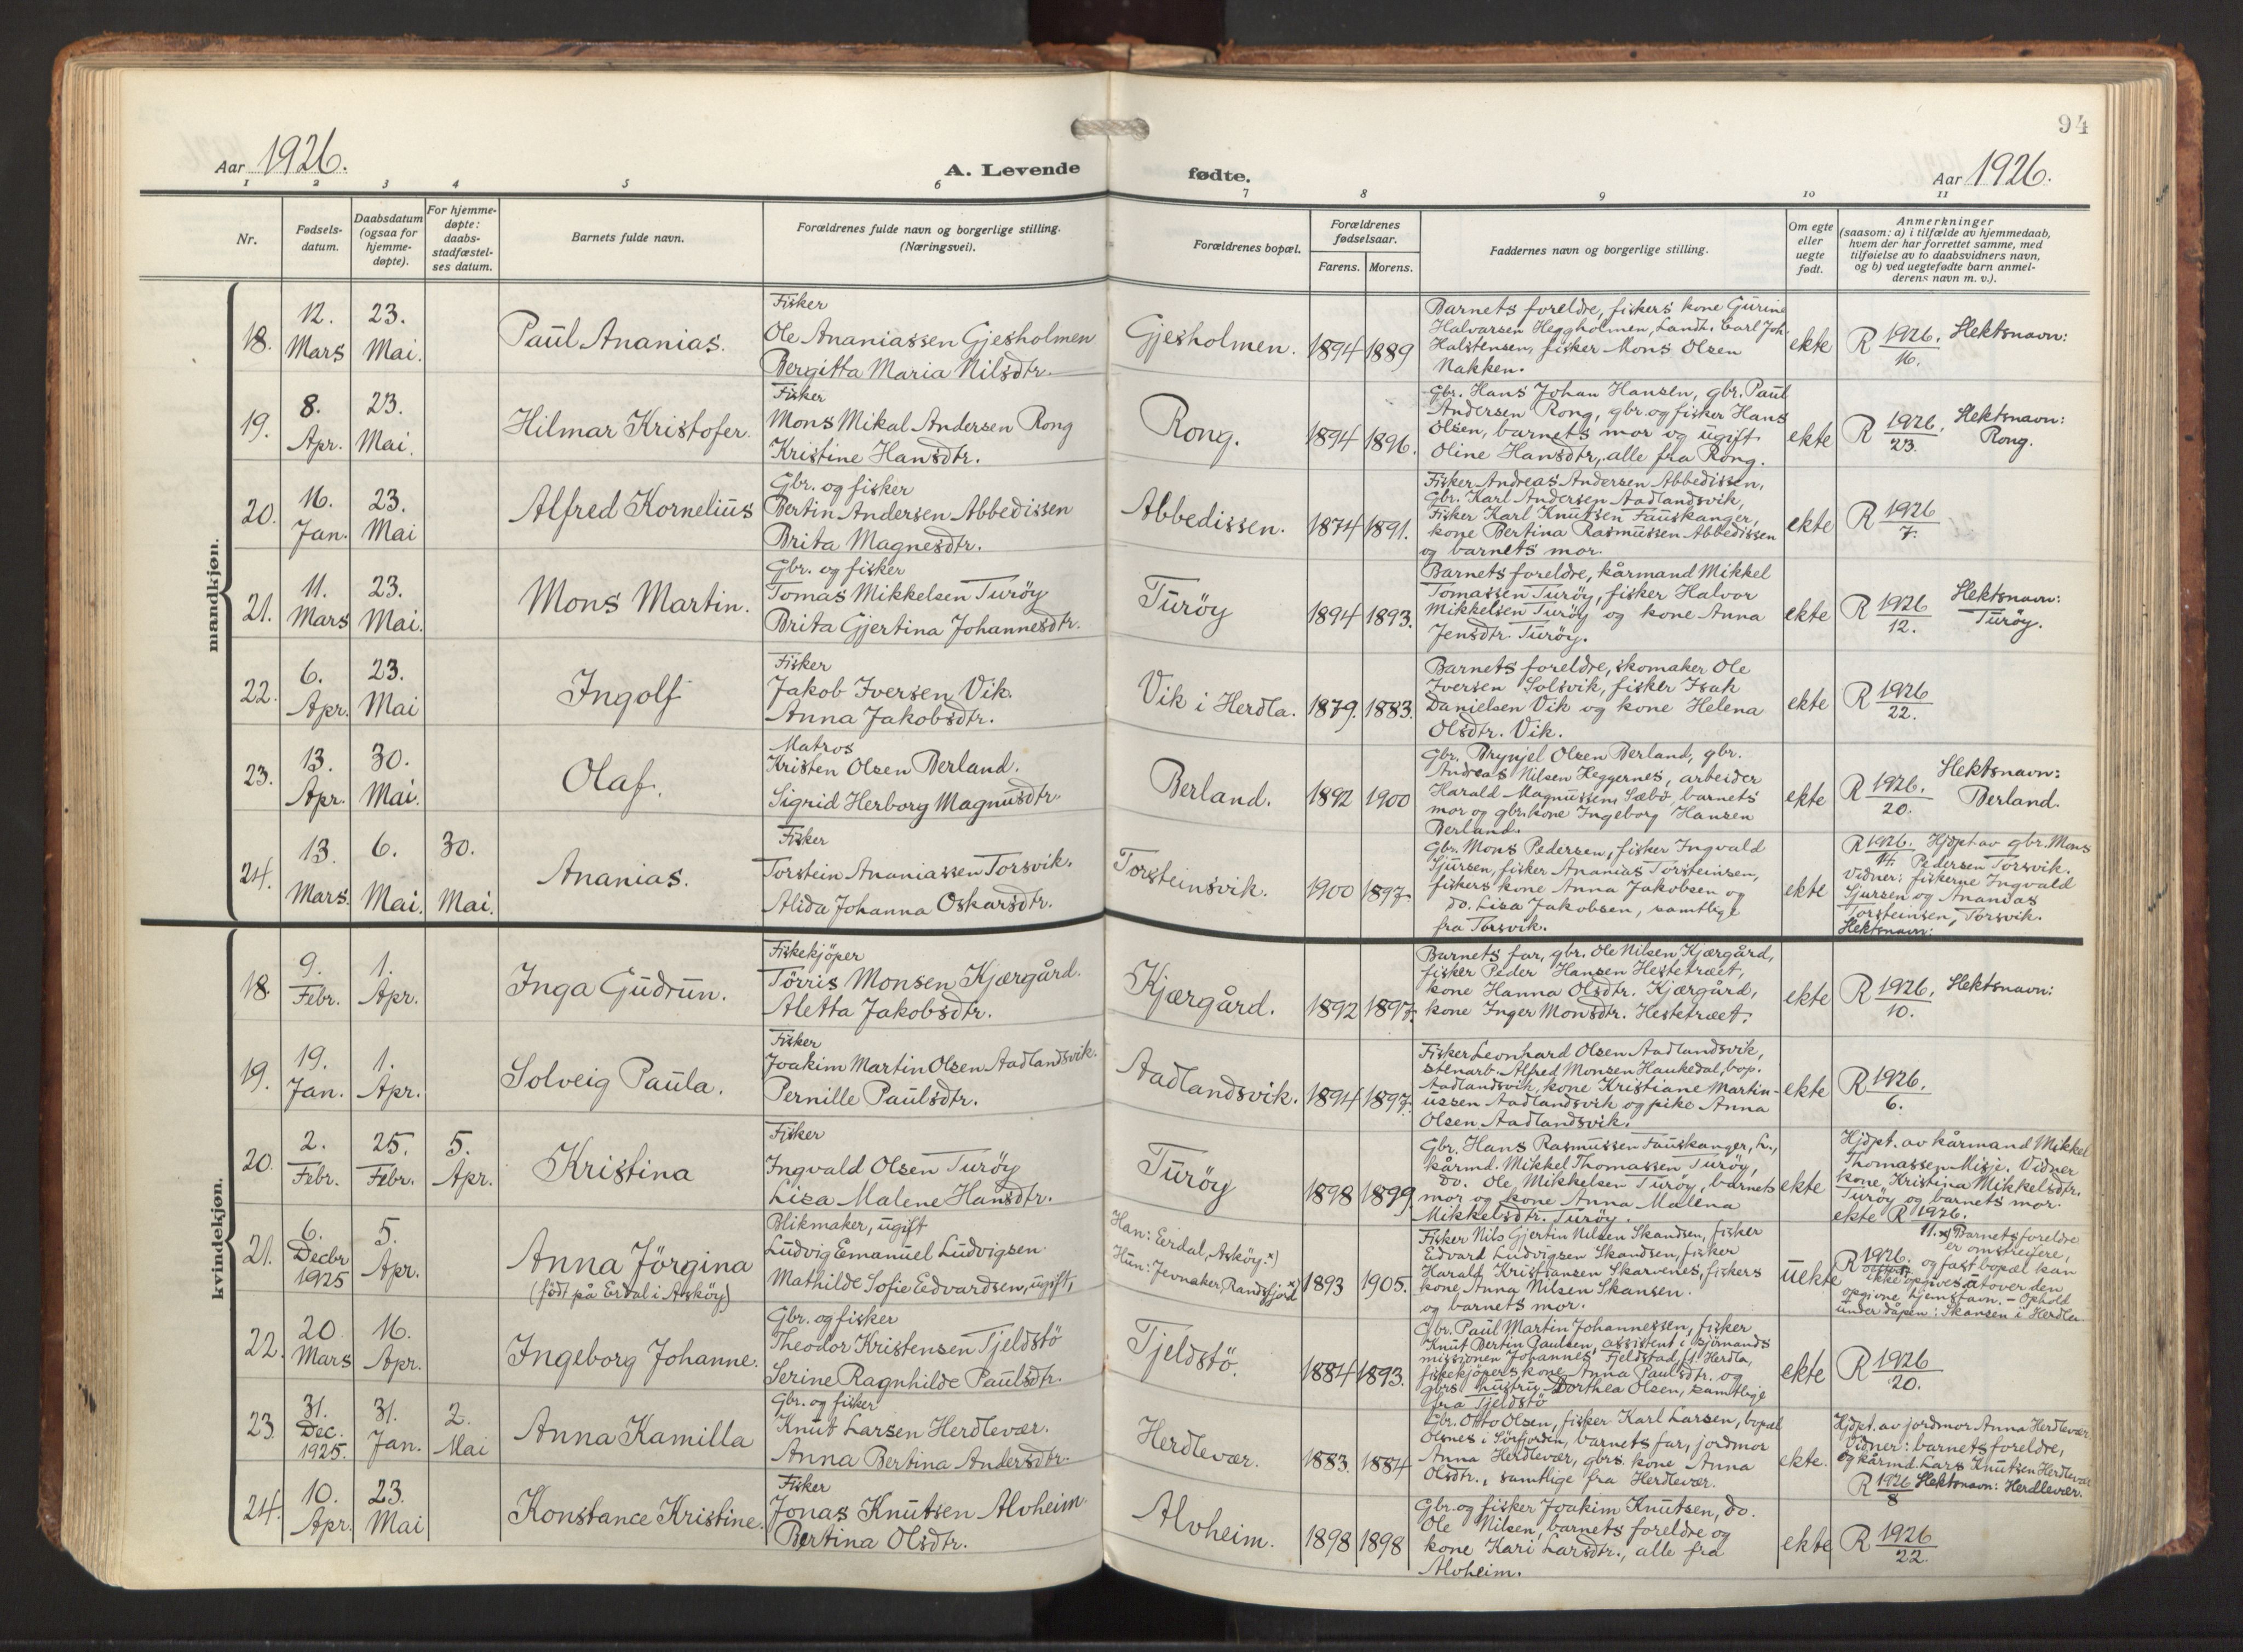 94
Aar 1926.
A. Levende fødte.
Aar 1926.
1 2 3 4 5 6 7 8 9 10 11
Nr.
Fødsels-
datum.
Daabsdatum
(ogsaa for
hjemme-
døpte).
For hjemme-
døpte:
daabs-
stadfæstel-
ses datum.
Barnets fulde navn.
Forældrenes fulde navn og borgerlige stilling.
(Næringsvei).
Forældrenes bopæl.
Forældrenes
fødselsaar.
Farens. Morens.
Faddernes navn og borgerlige stilling.
Om egte
eller
uegte
født.
Anmerkninger
(saasom: a) i tilfælde av hjemmedaab,
hvem der har forrettet samme, med
tilføielse av to daabsvidners navn,
og b) ved uegtefødte barn anmel-
derens navn m. v.).
mandkjøn.
18.
12.
Mars
23.
Mai.
Paul Ananias.
Fisker
Ole Ananiassen Gjesholmen
Bergitta Maria Nilsdtr.
Gjesholmen.
1894
1889
Barnets foreldre, fiskers kone Gurine
Halvarsen Heggholmen, Landh. Carl Joh.
Halstensen, fisker Mons Olsen
Nakken.
ekte
R 1926.
16.
Slektsnavn:
19.
8.
Apr.
23.
Mai.
Hilmar Kristofer.
Fisker
Mons Mikal Andersen Rong
Kristine Hansdtr.
Rong.
1894
1896.
Gbr. Hans Johan Hansen, gbr. Paul
Andersen Rong, gbr. og fisker Hans
Olsen, barnets mor og ugift
Oline Hansdtr, alle fra Rong.
ekte
R 1926.
23.
Slektsnavn:
Rong.
20.
16.
Jan.
23.
Mai
Alfred Kornelius
Gbr. og fisker
Bertin Andersen Abbedissen
Brita Magnesdtr.
Abbedissen.
1874
1891.
Fisker Andreas Andersen Abbedissen,
Gbr. Karl Andersen Aadlandsvik,
Fisker Karl Knutsen Fauskanger,
kone Bertina Rasmussen Abbedissen
og barnets mor.
ekte
R 1926
7.
21.
11.
Mars
23.
Mai.
Mons Martin.
Gbr. og fisker
Tomas Mikkelsen Turöy
Brita Gjertina Johannesdtr.
Turöy
1894
1893.
Barnets foreldre, kårmand Mikkel
Tomassen Turöy, fisker Halvor
Mikkelsen Turöy og kone Anna
Jensdtr. Turöy.
ekte
R 1926
12.
Slektsnavn:
Turöy.
22.
6.
Apr.
23.
Mai
Ingolf
Fisker
Jakob Iversen Vik.
Anna Jakobsdtr.
Vik i Herdla.
1879.
1883.
Barnets foreldre, skomaker Ole
Iversen Solsvik, fisker Isak
Danielsen Vik og kone Helena
Olsdtr. Vik.
ekte
R 1926
22.
23.
13.
Apr.
30.
Mai.
Olaf.
Matros
Kristen Olsen Berland.
Sigrid Herborg Magnusdtr.
Berland.
1892
1900
Gbr. Brynjel Olsen Berland, gbr.
Andreas Nilsen Heggernes, arbeider
Harald Magnussen Sæbö, barnets
mor og gbr. kone Ingeborg Hansen
Berland.
ekte
R 1926.
20.
Slektsnavn:
Berland.
24.
13.
Mars.
6.
Mai.
30.
Mai.
Ananias.
Fisker
Torstein Ananiassen Torsvik.
Alida Johanna Oskarsdtr.
Torsteinsvik.
1900
1897.
Gbr. Mons Pedersen, fisker Ingvald
Sjursen, fisker Ananias Torsteinsen,
fiskers kone Anna Jakobsen og
do. Lisa Jakobsen, samtlige
fra Torsvik.
ekte
R 1926. Hjdpt av gbr. Mons
14. Pedersen Torsvik.
Vidner: fiskerne Ingvald
Sjursen og Ananias
Torsteinsen, Torsvik.
Slektsnavn:
kvindekjøn.
18.
9.
Febr.
1.
Apr.
Inga Gudrun.
Fiskekjöper
Törris Monsen Kjærgård.
Aletta Jakobsdtr.
Kjærgård.
1892
1897.
Barnets far, gbr. Ole Nilsen Kjærgård,
fisker Peder Hansen Hestetræet,
kone Hanna Olsdtr. Kjærgård,
kone Inger Monsdtr. Hestetræet.
ekte
R 1926.
10.
Slektsnavn:
19.
19.
Jan.
1.
Apr.
Solveig Paula.
Fisker
Joakim Martin Olsen Aadlandsvik.
Pernille Paulsdtr.
Aadlandsvik.
1894
1897.
Fisker Leonhard Olsen Aadlandsvik,
stenarb. Alfred Monsen Haukedal, bop.
Aadlandsvik, kone Kristiane Martin-
ussen Aadlandsvik og pike Anna
Olsen Aadlandsvik.
ekte
R 1926.
6.
20.
2.
Febr.
25.
Febr.
5.
Apr.
Kristina
Fisker
Ingvald Olsen Turöy
Lisa Malene Hansdtr.
Turöy
1898
1899.
Gbr. Hans Rasmussen Fauskanger, h.,
kårmd. Mikkel Thomassen Turöy,
do. Ole Mikkelsen Turöy, barnets
mor og kone Anna Malena
Mikkelsdtr. Turöy.
ekte
Hjdpt. av kårmand Mikkel
Thomassen Misje. Vidner
kone Kristina Mikkelsdtr.
Turöy og barnets mor.
ekte R 1926.
11.
21.
6.
Decbr
1925
5.
Apr.
Anna Jörgina
(född på Erdal i Asköy)
Blikmaker, ugift
Ludvig Emanuel Ludvigsen.
Mathilde Sofie Edvardsen, ugift,
Han: Eerdal, Asköy. x)
Hun: Jevnaker, Randsfjord x)
1893
1905.
Fisker Nils Gjertin Nilsen Skandsen, fisker
Edvard Ludvigsen Skandsen, fisker
Harald Kristiansen Skarvenes, fiskers
kone Anna Nilsen Skansen.
og barnets mor.
uekte
x) Barnets foreldre
er omstreifere,
R 1926. og fast bopæl kan
ikke opgives utover den
opgivne hjemstavn. - Ophold
under dåpen: Skansen i Herdla
22.
20
Mars
16.
Apr.
Ingeborg Johanne.
Gbr. og fisker
Theodor Kristensen Tjeldstö
Serine Ragnhilde Paulsdtr.
Tjeldstö.
1884
1893.
Gbr. Paul Martin Johannessen, fisker
Knut Bertin Paulsen, assistent i sjömands
missionen Johannes Fjeldstad, Herdla,
fiskekjöpers kone Anna Paulsdtr. og
gbrs hustru Dorthea Olsen, samtlige
fra Tjeldstö
ekte
R 1926
20.
23
31.
Dec.
1925.
31.
Jan.
2.
Mai
Anna Kamilla
Gbr. og fisker
Knut Larsen Herdlevær.
Anna Bertina Andersdtr.
Herdlevær.
1883.
1884
Gbr. Otto Olsen, fisker Karl Larsen, bopæl
Olsnes i Sörfjorden, barnets far, jordmor
Anna Herdlevær, gbrs. kone Anna
Olsdtr., samtlige fra Herdlevær.
ekte.
Hjdpt. av jordmor Anna Herdlevær
Vidner: barnets foreldre,
og kårmd. Lars Knutsen Herdlevær
R 1926 Slektsnavn: Herdlevær.
8
24.
10.
Apr.
23.
Mai
Konstance Kristine.
Fisker
Jonas Knutsen Alvheim.
Bertina Olsdtr.
Alvheim.
1898
1898
Gbr. og fisker Joakim Knutsen, do.
Ole Nilsen, barnets foreldre og
kone Kari Larsdtr., alle fra
Alvheim.
ekte
R 1926
22.